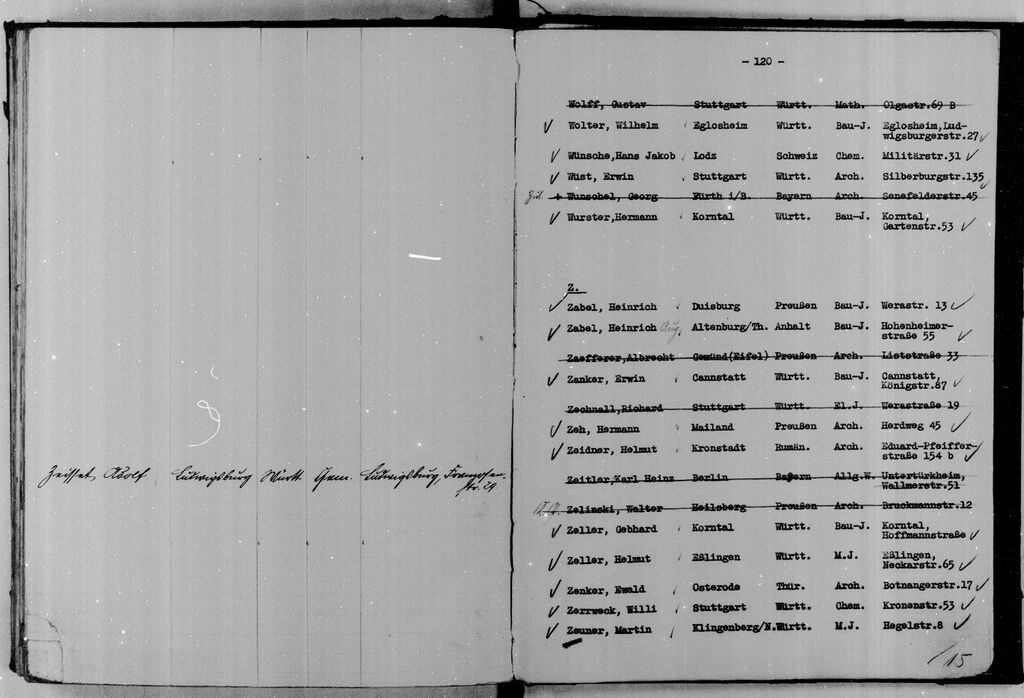 Zeisset Adolf Ludwigsburg Württ. Chem. Ludwigsburg,
str. 29
- 120 -
Wolff, Gustav Stuttgart Württ. Math. Olgastr.69 B
Wolter, Wilhelm Eglosheim Württ. Bau-J. Eglosheim,Lud-
wigsburgerstr.27
Wünsche,Hans Jakob Lodz Schweiz Chem. Militärstr.31
Wüst, Erwin Stuttgart Württ. Arch. Silberburgstr.135
+ Wunschel, Georg Fürth i/B. Bayern Arch. Senefelderstr.45
Wurster,Hermann Korntal Württ. Bau-J. Korntal,
Gartenstr.53
Z.
Zabel, Heinrich Duisburg Preußen Bau-J. Werastr. 13
Zabel, Heinrich Aug. Altenburg/Th. Anhalt Bau-J. Hohenheimer-
straße 55
Zaefferer,Albrecht Gemünd(Eifel) Preußen Arch. Liststraße 33
Zanker, Erwin Cannstatt Württ. Bau-J. Cannstatt,
Königstr.87
Zechnall,Richard Stuttgart Württ. El.J. Werastraße 19
Zeh, Hermann Mailand Preußen Arch. Herdweg 45
Zeidner, Helmut Kronstadt Rumän. Arch. Eduard-Pfeiffer-
straße 154 b
Zeitler,Karl Heinz Berlin Bayern Allg.W. Untertürkheim,
Wallmerstr.51
Zelinski, Walter Heilsberg Preußen Arch. Bruckmannstr.12
Zeller, Gebhard Korntal Württ. Bau-J. Korntal,
Hoffmannstraße
Zeller, Helmut Eßlingen Württ. M.J. Eßlingen,
Neckarstr.65
Zenker, Ewald Osterode Thür. Arch. Botnangerstr.17
Zerrweck, Willi Stuttgart Württ. Chem. Kronenstr.53
Zeuner, Martin Klingenberg/N.Württ. M.J. Hegelstr.8
15